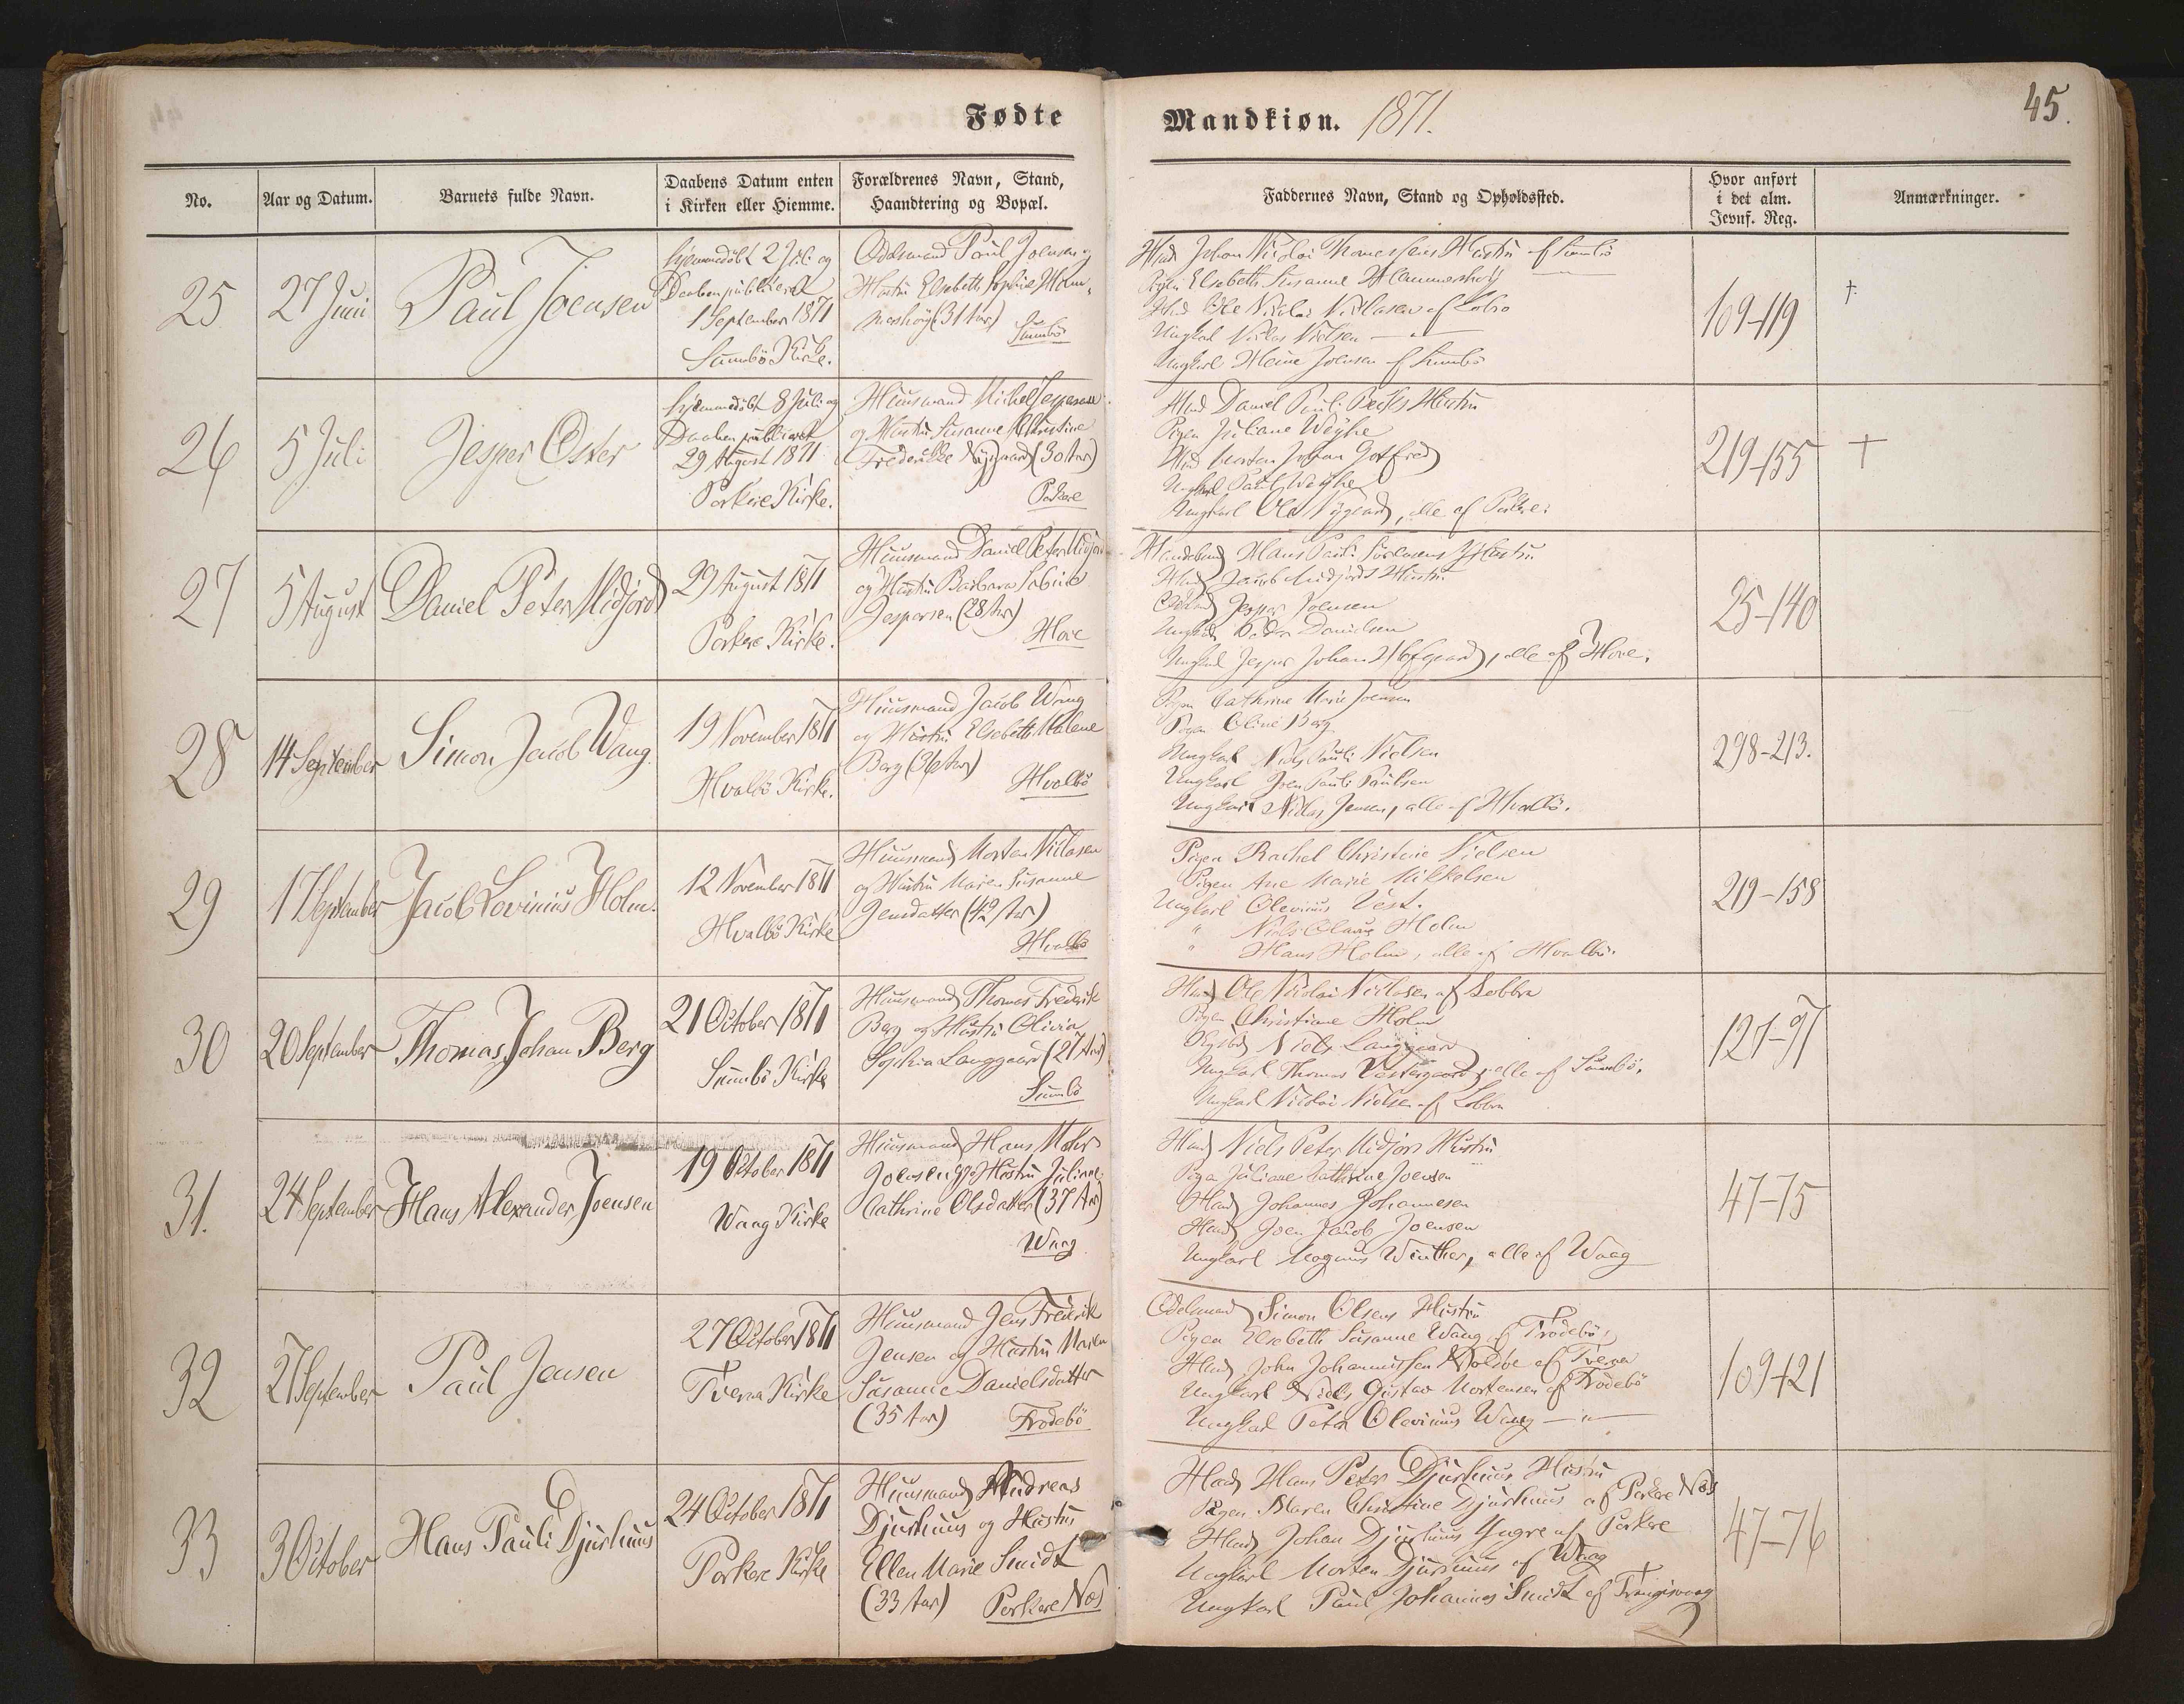 Fødte
Mandkiøn. 1871.
45.
No.
Aar og Datum.
Barnets fulde Navn.
Daabens Datum enten
i Kirken eller Hiemme.
Forældrenes Navn, Stand,
Haandtering og Bopæl.
Faddernes Navn, Stand og Opholdssted.
Hvor anført
i det alm.
Jevnf. Reg.
Anmærkninger.
25
27 Juni
Paul Joensen
hjemmedöbt 2 Juli og
Daaben publiceret
1 September 1871
Sumbö Kirke.
Odelsmand Paul Joensen og
Hustru Elsebeth Sophie Ham-
mershøj (31 Aar)
Sumbö
Johan Nicolai Thomassens Hustru af Sumbö
Pigen Elsebeth Susanne Hammershøj
Ole Nicolai Niclasen af Lobra
Ungkarl Niclas Nielsen — " —
Ungkarl Heine Joensen af Sumbö
109-119
†.
26
5 Juli
Jesper Oster
hjemmedöbt 8 Juli og
Daaben publiceret
29 August 1871
Porkere Kirke.
Huusmand Michel Jespersen
og Hustru Susanne Christine
Frederikke Nygaard (30 Aar)
Porkere
Hmd Daniel Pauli Hustru
Pigen Juliane Weyhe
Hmd Morten Johan Gotfred
Ungkarl Paul Weyhe
Ungkarl Ole Nygaard, alle af Porkere.
219-155
†
27
5 August
Daniel Peter Midjord
29 August 1871
Porkere Kirke.
Huusmand Daniel Peter Midjord
og Hustru Barbara Sabina
Jespersen (28 Aar)
Hove
Hans Pauli Hustru
Jacob Midjords Hustru
Jesper Joensen
Danielsen
Ungkarl Jesper Johan Hofgaard, alle af Hove.
25-140
28
14 September
Simon Jacob Wang.
19 November 1871
Hvalbö Kirke.
Huusmand Jacob Wang
og Hustru Elsebeth Malene
Berg (36 Aar)
Hvalbö
Pigen Cathrine Marie Joensen
Pigen Oline Berg
Ungkarl Niels Pauli Nielsen
Ungkarl Joen Pauli Poulsen
Ungkarl Niclas Jensen, alle af Hvalbö.
298-213.
29
17 September
Jacob Lovinius Holm.
12 November 1871
Hvalbö Kirke
Huusmand Morten Niclasen
og Hustru Maren Susanne
Jensdatter (42 Aar)
Hvalbö
Pigen Rachel Christine Nielsen
Pigen Ane Marie Mikkelsen
Ungkarl Olevinus Vest.
" Niels Olaus Holm
" Hans Holm, alle af Hvalbö.
219-158
30
20 September
Thomas Johan Berg
21 October 1871
Sumbö Kirke
Huusmand Thomas Frederik
Berg og Hustru Olivia
Sophia Langgaard (27 Aar)
Sumbö
Hmd Ole Nicolai Niclasen af Lobbra
Pigen Christiane Holm
Niels Langgaard
Ungkarl Thomas Vestergaard, alle af Sumbö.
Ungkarl Nicolai Nielsen af Lobbra
127-97
31.
24 September
Hans Alexander Joensen
19 October 1871
Waag Kirke
Huusmand Hans
Joensen og Hustru Juliane
Cathrine Olsdatter (37 Aar)
Waag
Hmd Niels Peter Midjords Hustru
Pigen Juliane Cathrine Joensen
Hmd Johannes Johannesen
Hmd Joen Jacob Joensen
Ungkarl Magnus Winther, alle af Waag
47-75
32
27 September
Paul Jensen
27 October 1871
Tveraa Kirke
Huusmand Jens Frederik
Jensen og Hustru Maren
Susanne Danielsdatter
(35 Aar) Frodebö
Odelsmand Simon Olsens Hustru
Pigen Elsebeth Susanne Wang af Frodebö,
Hmd John Johannessen Holsbe af Tveraa
Ungkarl Niels Gustav Mortensen af Frodebö
Ungkarl Peter Olevinus Wang — " —
109-121
33
3 October
Hans Pauli Djurhuus
24 October 1871
Porkere Kirke
Huusmand Andreas
Djurhuus og Hustru
Ellen Marie Smidt
(33 Aar) Porkere Næs
Hmd Hans Peter Djurhuus Hustru
Pigen Maren Christine Djurhuus af Porkere Næs
Hmd Johan Djurhuus Yngre af Porkere
Ungkarl Morten Djurhuus af Waag
Ungkarl Paul Johannes Smidt af Trangisvaag
47-76